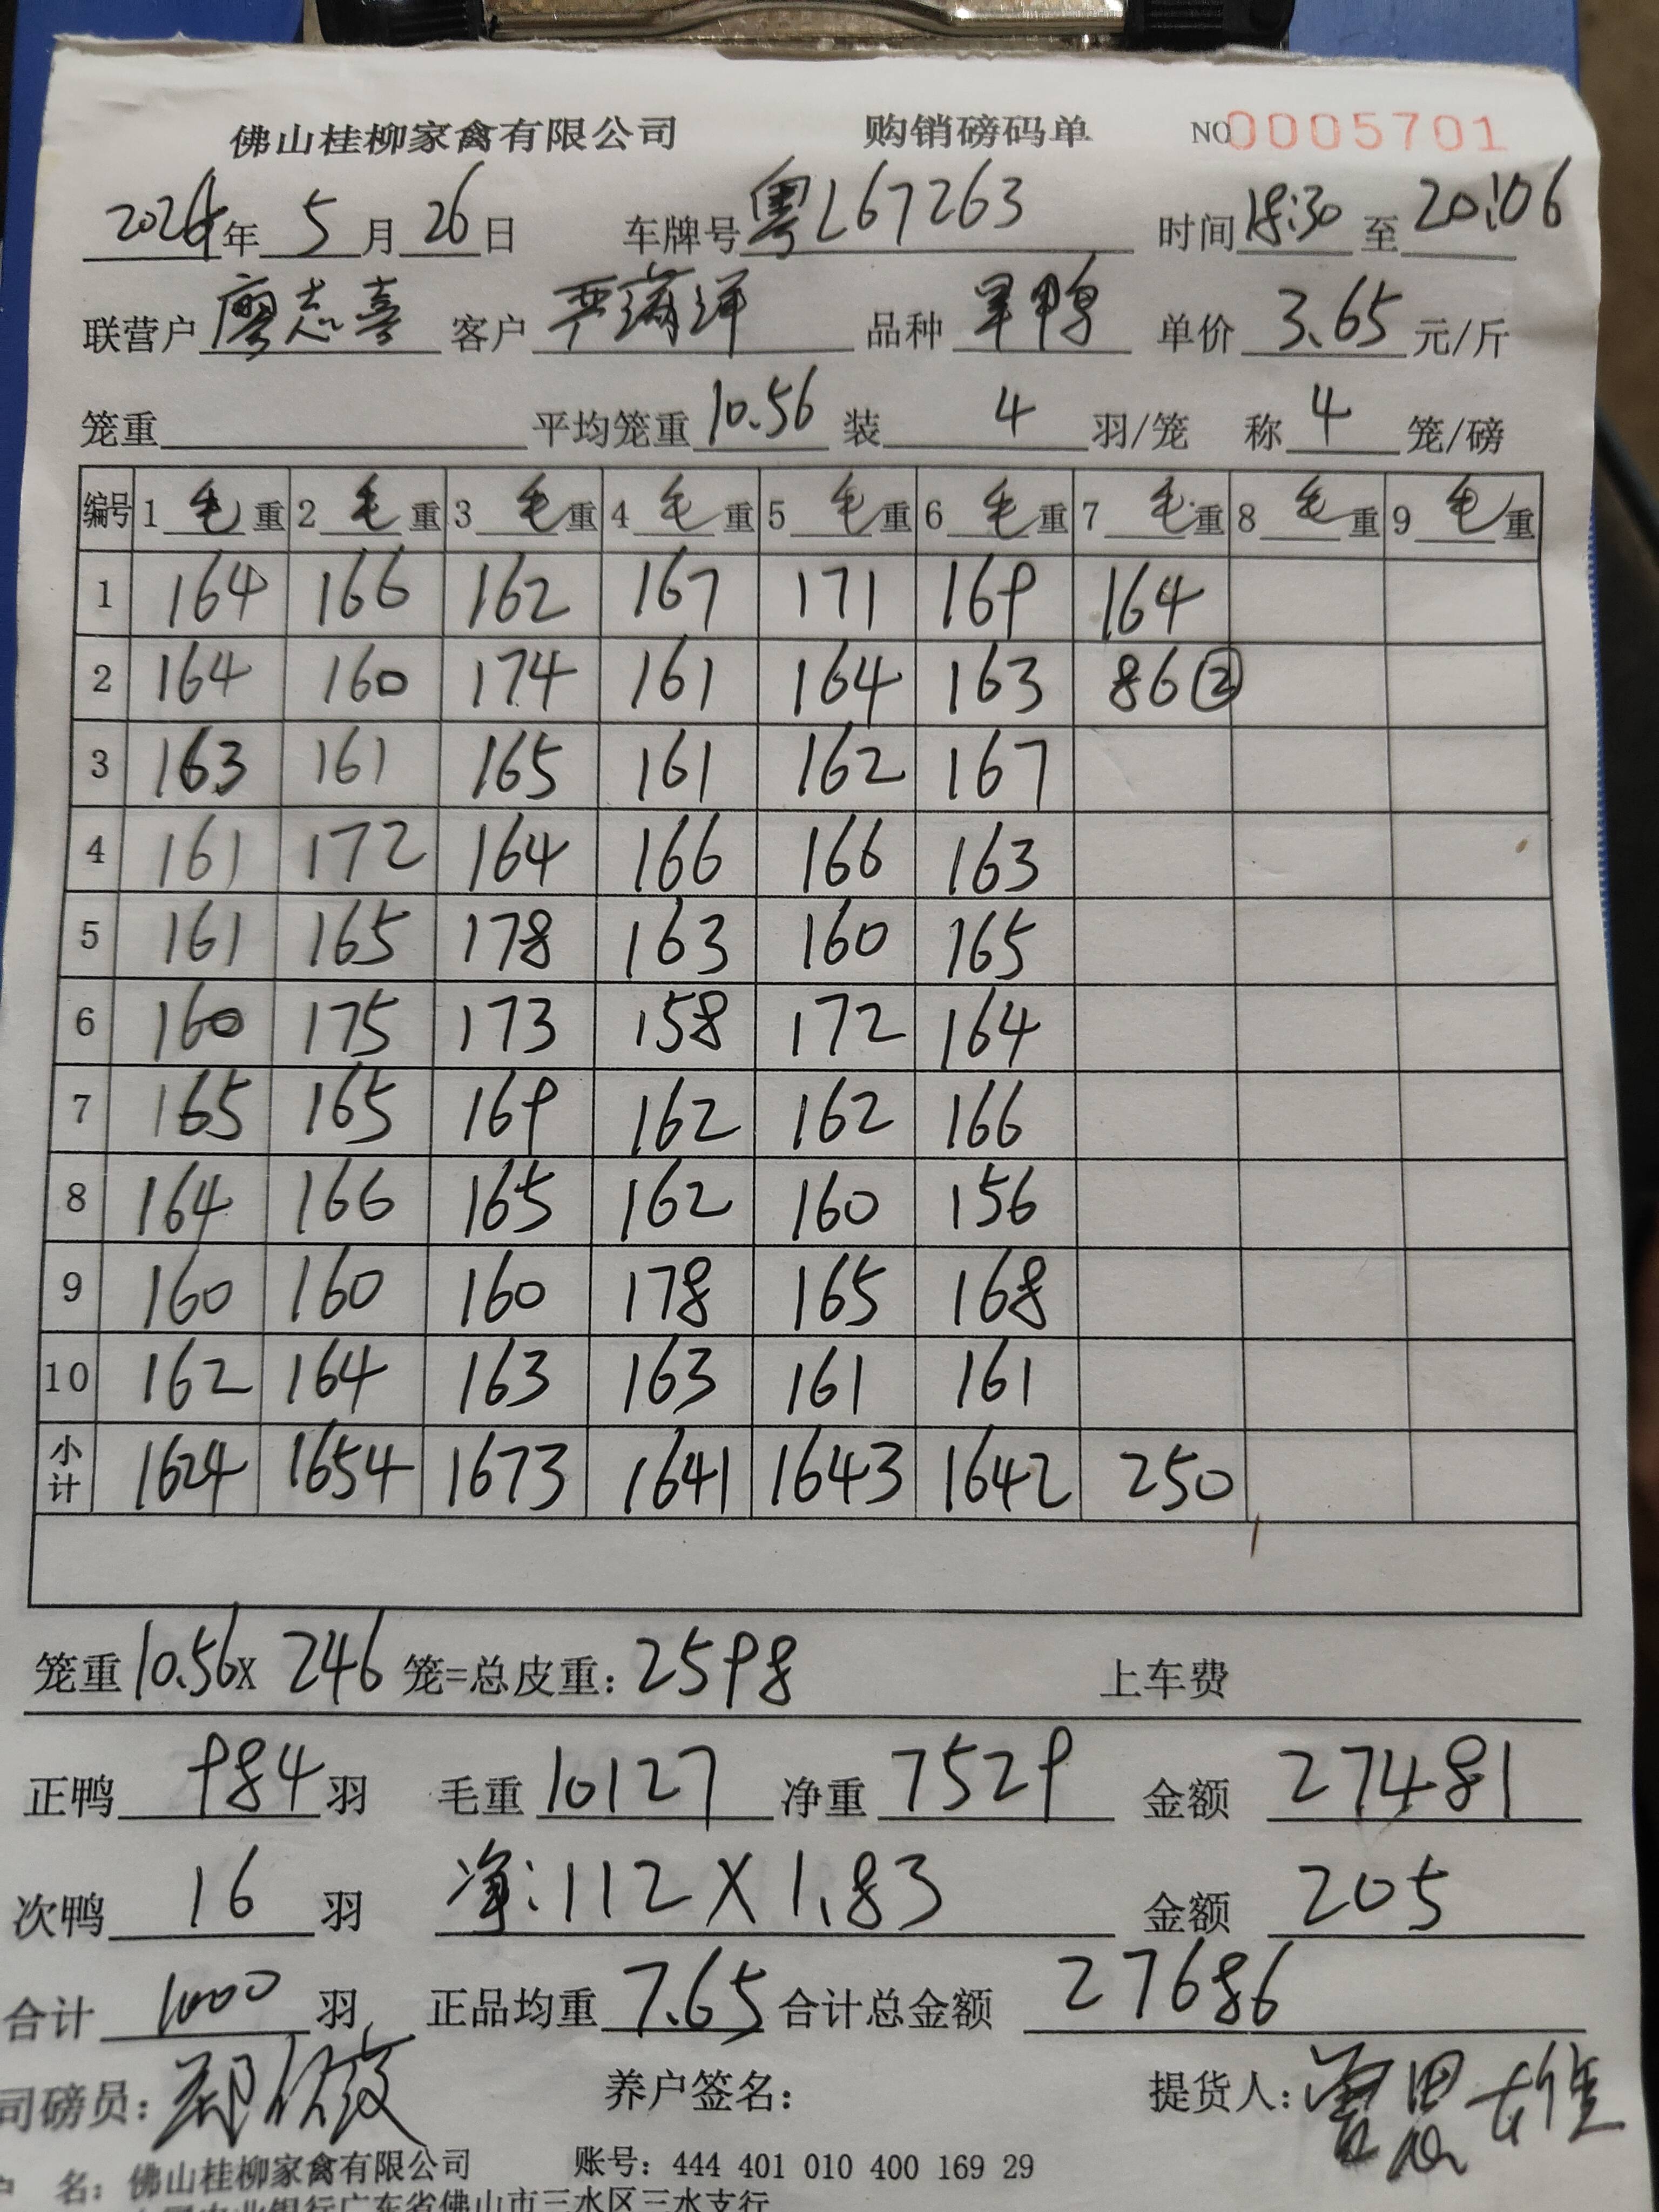 佛山桂柳家禽有限公司 购销磅码单 NO 0005701
2024年 5月 26日 车牌号 粤L67263 时间 18:30 至 20:06
联营户 廖志喜 客户 严满洋 品种 旱鸭 单价 3.65 元/斤
笼重 平均笼重 10.56 装 4 羽/笼 称 4 笼/磅
编号 1 毛 重 2 毛 重 3 毛 重 4 毛 重 5 毛 重 6 毛 重 7 毛 重 8 毛 重 9 毛 重
1 164 166 162 167 171 169 164
2 164 160 174 161 164 163 86②
3 163 161 165 161 162 167
4 161 172 164 166 166 163
5 161 165 178 163 160 165
6 160 175 173 158 172 164
7 165 165 169 162 162 166
8 164 166 165 162 160 156
9 160 160 160 178 165 168
10 162 164 163 163 161 161
小计 1624 1654 1673 1641 1643 1642 250
笼重 10.56 x 246 笼=总皮重: 2598 上车费
正鸭 984 羽 毛重 10127 净重 7529 金额 27481
次鸭 16 羽 净:112 X 1.83 金额 205
合计 1000 羽 正品均重 7.65 合计总金额 27686
司磅员: 养户签名: 提货人:
名: 佛山桂柳家禽有限公司 账号: 444 401 010 400 169 29
农业银行广东省佛山市三水区三水支行